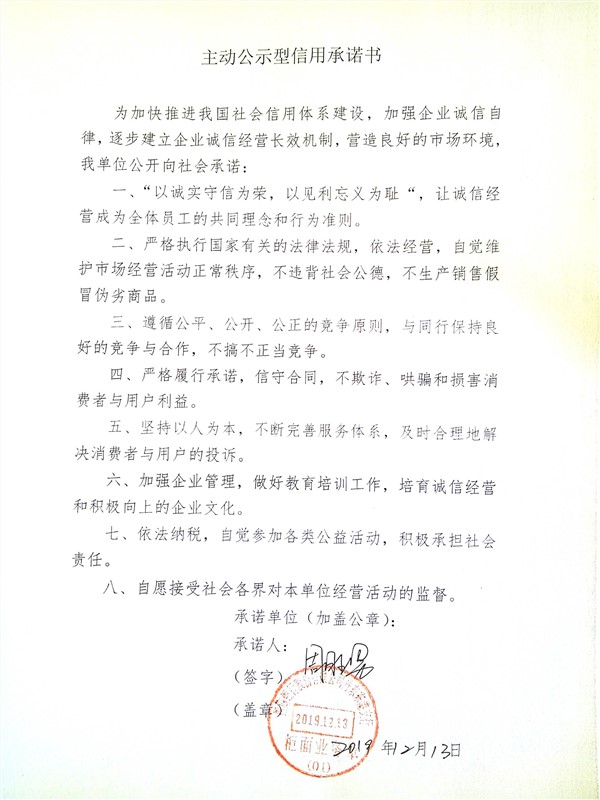 主动公示型信用承诺书
为加快推进我国社会信用体系建设，加强企业诚信自
律，逐步建立企业诚信经营长效机制，营造良好的市场环境，
我单位公开向社会承诺：
一、“以诚实守信为荣，以见利忘义为耻“，让诚信经
营成为全体员工的共同理念和行为准则。
二、严格执行国家有关的法律法规，依法经营，自觉维
护市场经营活动正常秩序，不违背社会公德，不生产销售假
冒伪劣商品。
三、遵循公平、公开、公正的竞争原则，与同行保持良
好的竞争与合作，不搞不正当竞争。
四、严格履行承诺，信守合同，不欺诈、哄骗和损害消
费者与用户利益。
五、坚持以人为本，不断完善服务体系，及时合理地解
决消费者与用户的投诉。
六、加强企业管理，做好教育培训工作，培育诚信经营
和积极向上的企业文化。
七、依法纳税，自觉参加各类公益活动，积极承担社会
责任。
八、自愿接受社会各界对本单位经营活动的监督。
承诺单位（加盖公章）：
承诺人：
（签字）
（盖章）
2019.12.13
(01)
2019 年12月13日